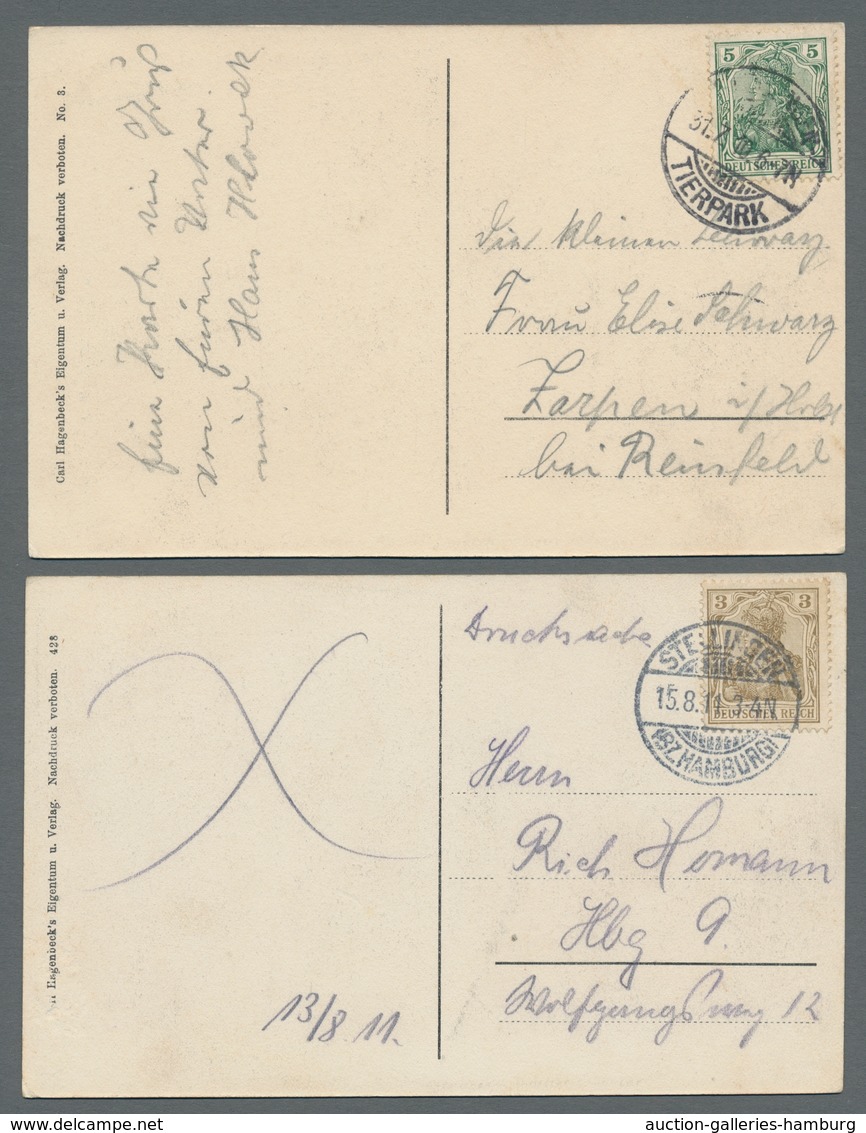 Carl Hagenbeck's Eigentum u. Verlag. Nachdruck verboten. No. 3.
von
und Hans
5 5
DEUTSCHES REICH
31.7. 6-7N
TIERPARK
Die kleinen Schwarz
Frau Elise Schwarz
Zarpen i/Holst
bei Reinsfeld
Hagenbeck's Eigentum u. Verlag. Nachdruck verboten. 428
13/8 11.
Drucksache
3 3
DEUTSCHES REICH
STELLINGEN
15.8.11 3-4N
(BZ. HAMBURG)
Herrn
Rich Homann
Hbg 9.
Wolfgangsweg 12
auction-galleries-hamburg